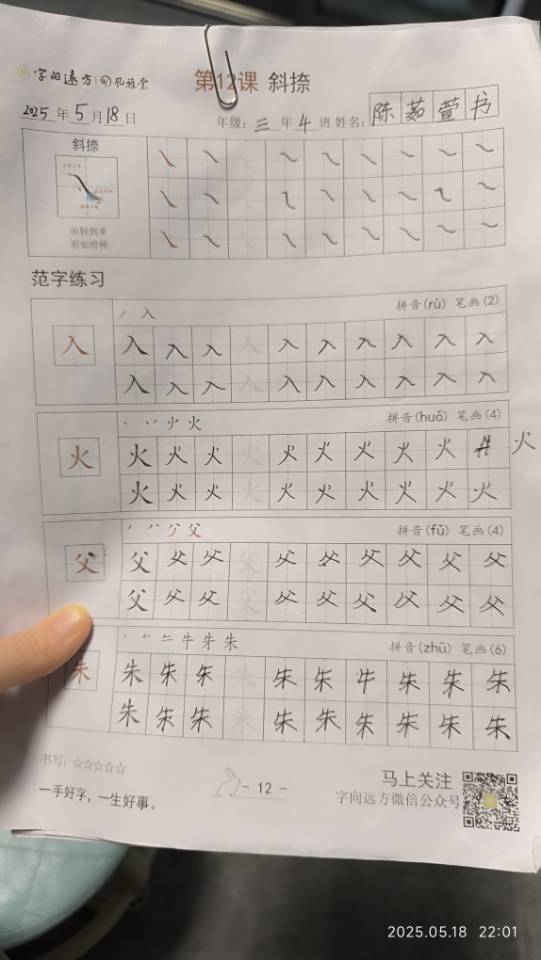 字向远方 凤雅堂
第12课 斜捺
2025年5月18日
年级:三年4班 姓名:陈茹萱书
斜捺
由轻到重
形如滑梯
范字练习
拼音(rù) 笔画(2)
丿 入
入 入 入 入 入 入 入 入 入 入 入
入 入 入 入 入 入 入 入 入 入
拼音(huǒ) 笔画(4)
火
火 火 火 火 火 火 火 火 火 火 火
火 火 火 火 火 火 火 火 火 火
拼音(fǔ) 笔画(4)
父
父 父 父 父 父 父 父 父 父 父 父
父 父 父 父 父 父 父 父 父 父
拼音(zhū) 笔画(6)
牛 朱
朱 朱 朱 朱 朱 朱 朱 牛 朱 朱 朱
朱 朱 朱 朱 朱 朱 朱 朱 朱 朱
书写:☆☆☆☆☆
一手好字，一生好事。
- 12 -
马上关注
字向远方微信公众号
2025.05.18 22:01